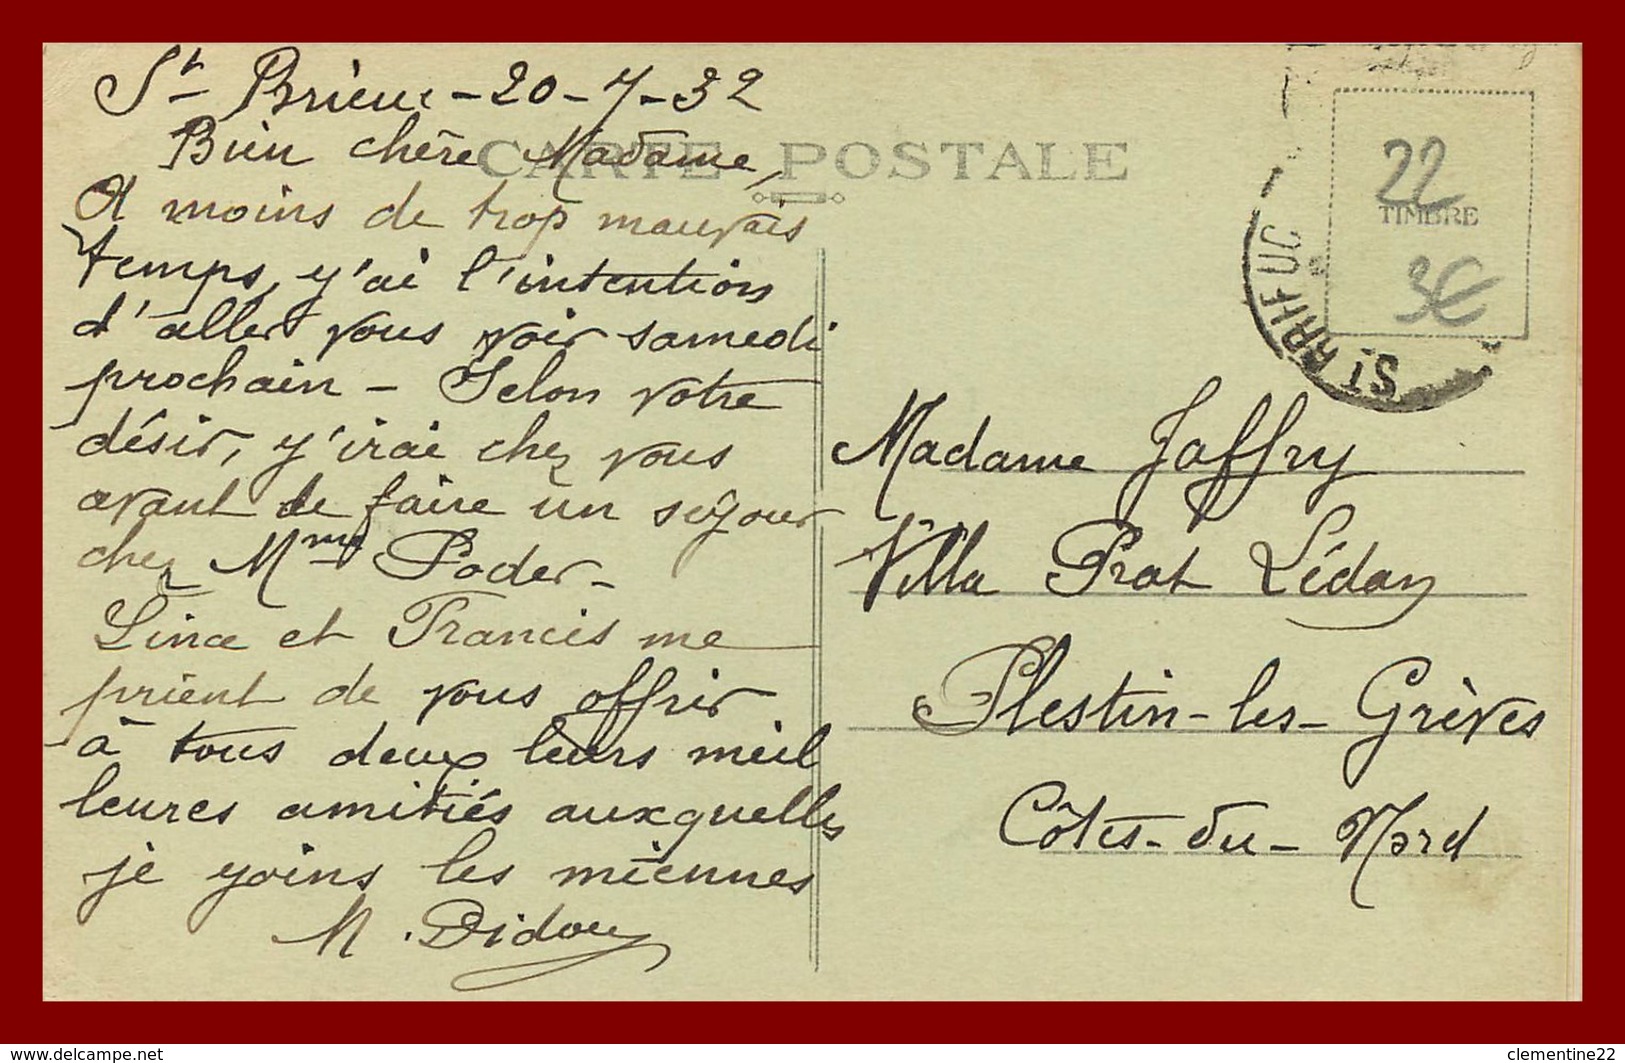 St Brieuc - 20-7-32
Bien chère Madame,
A moins de trop mauvais
temps, j'ai l'intention
d'aller vous voir samedi
prochain - Selon votre
désir, j'irai chez vous
avant de faire un séjour
chez Mme Poder -
Lina et Francis me
prient de vous offrir
à tous deux leurs meil
leures amitiés auxquelles
je joins les miennes
M. Didou
CARTE POSTALE
TIMBRE
22
3€
ST BRIEUC
Madame Jaffry
Villa Prat Lédan
Plestin-les-Grèves
Côtes-du-Nord
https://www.delcampe.net
clementine22